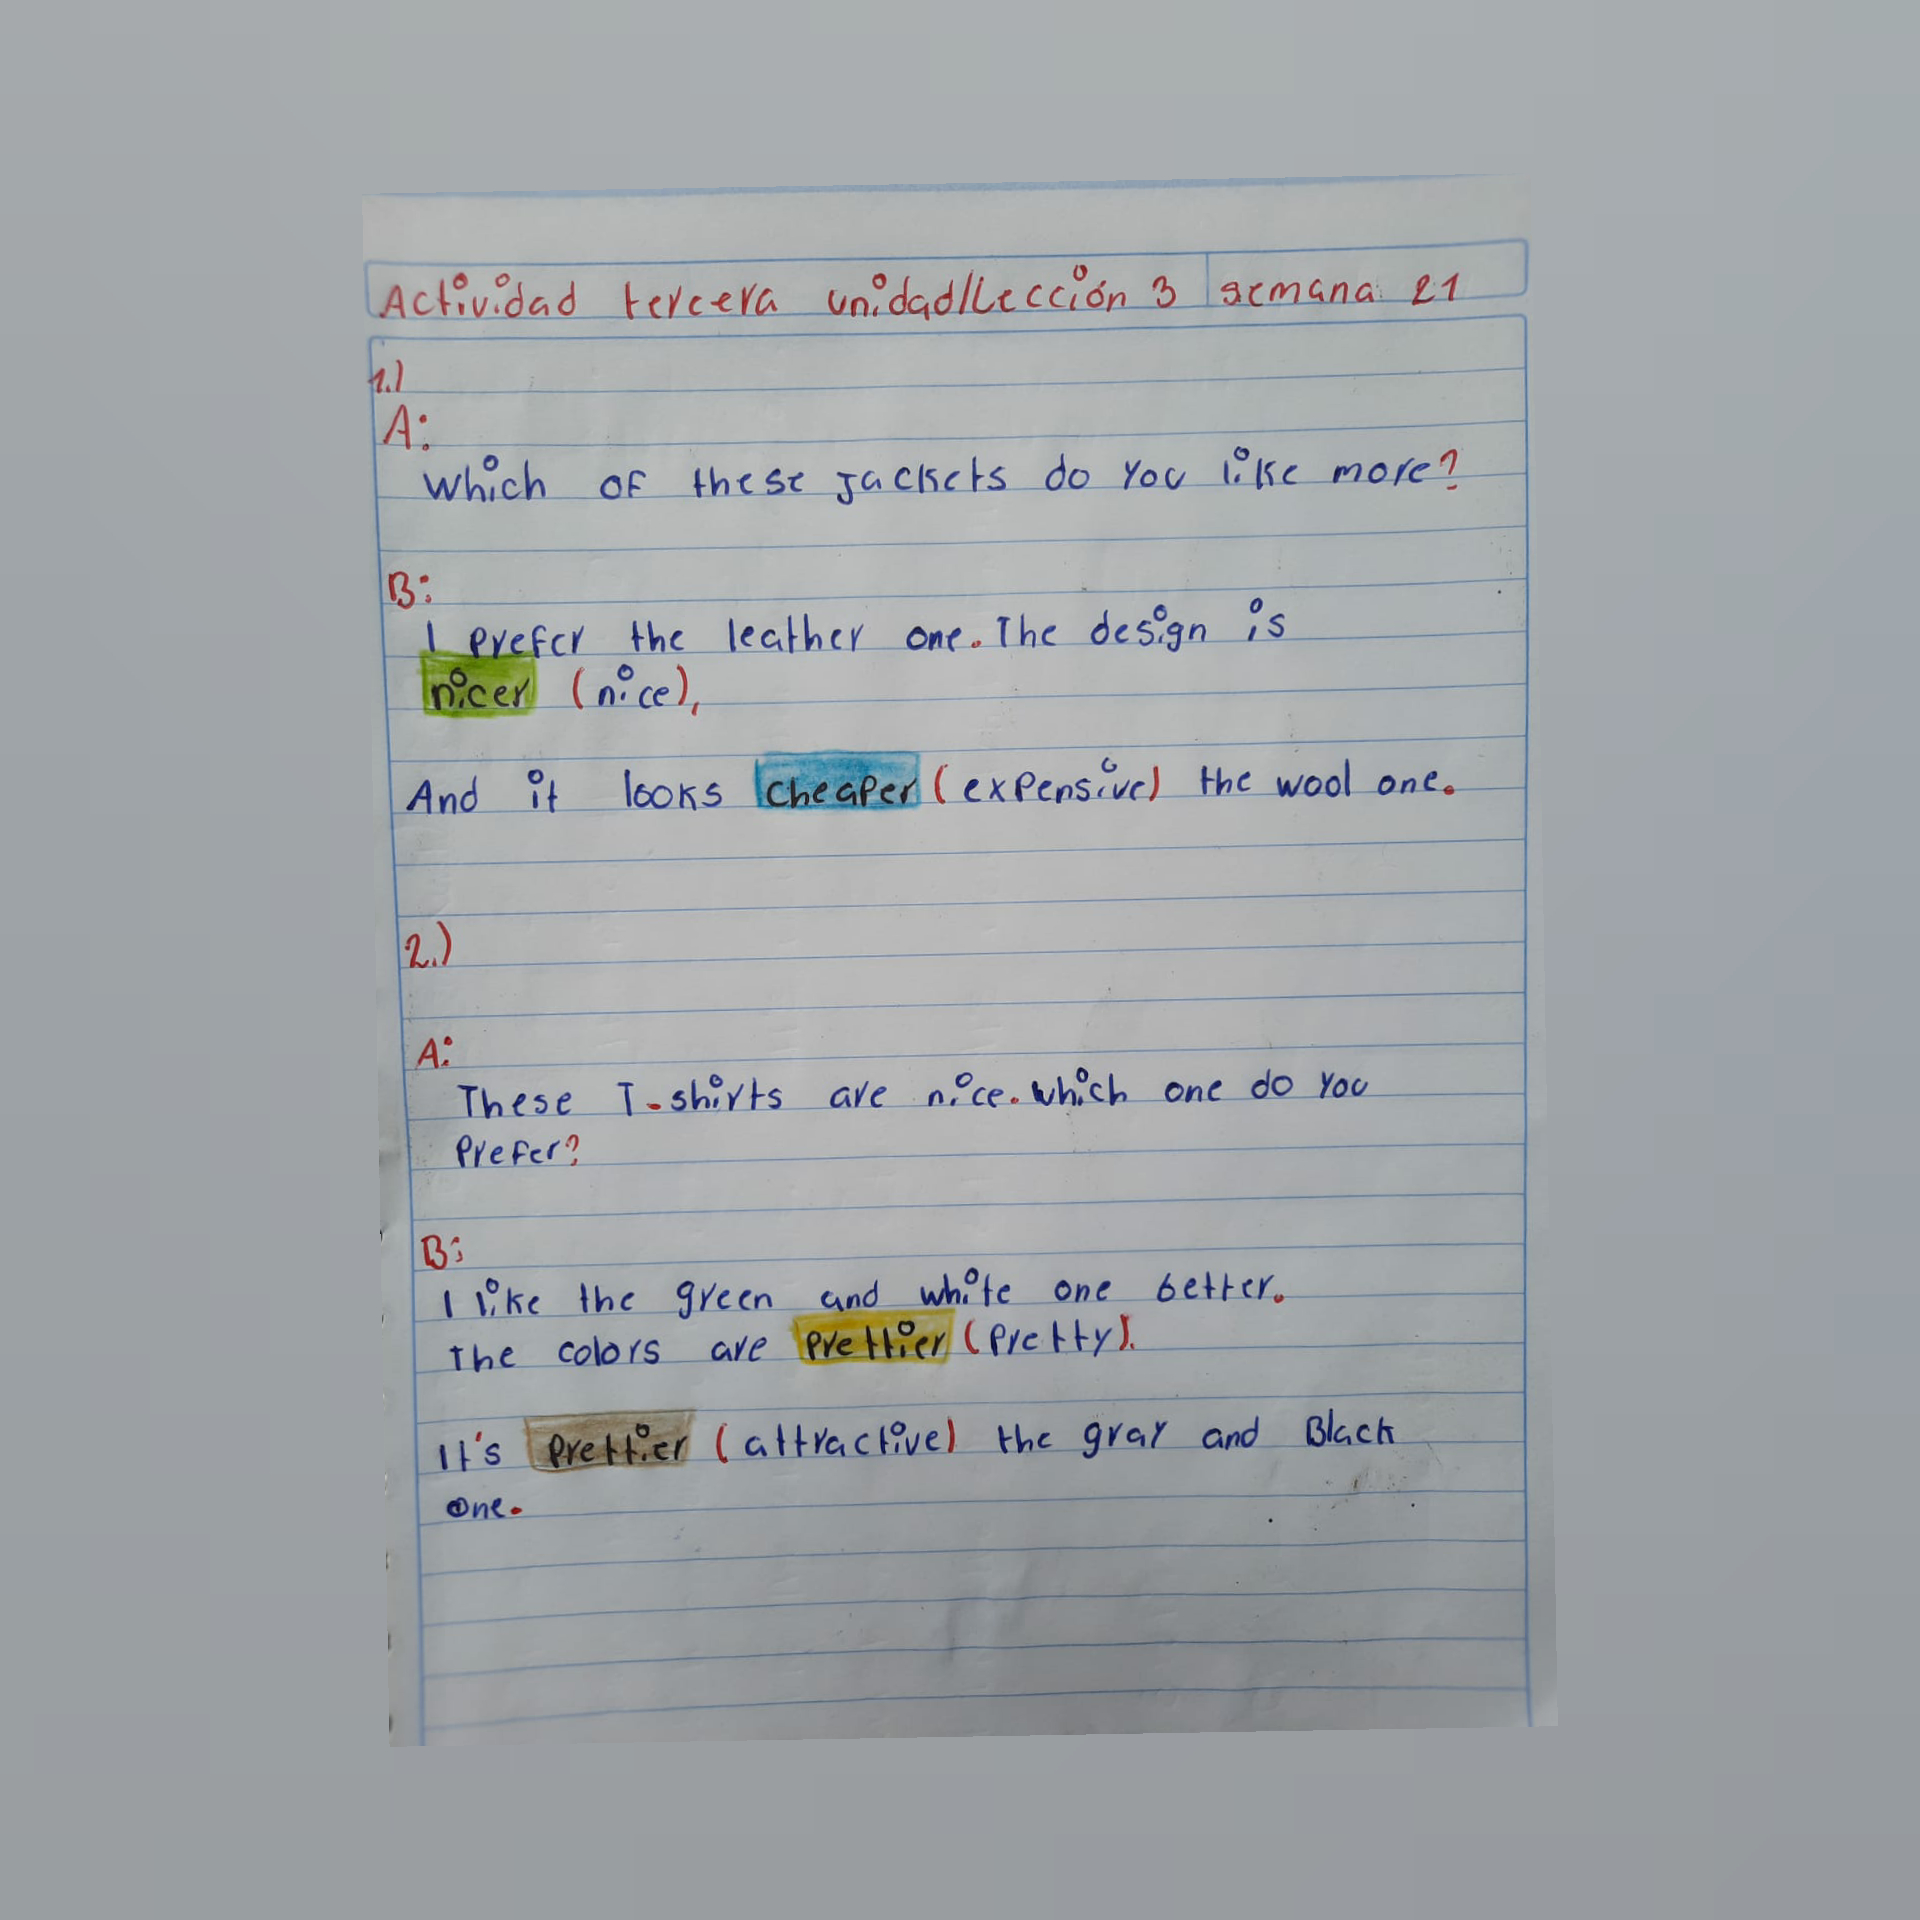 Actividad tercera unidad/Lección 3 semana 21
1.)
A:
Which of these jackets do you like more?
B:
I prefer the leather one. The design is
nicer (nice),
And it looks cheaper (expensive) the wool one.
2.)
A:
These T-shirts are nice. which one do you
prefer?
B:
I like the green and white one better.
the colors are prettier (pretty).
It's prettier (attractive) the gray and Black
one.